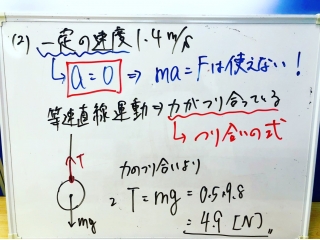 (2) 一定の速度 1.4 m/s
↳ a = 0 ⇒ ma = Fは使えない!
等速直線運動 ⇒ 力がつり合っている
↳ つり合いの式
T
mg
力のつり合いより
T = mg = 0.5×9.8
= 4.9 [N]